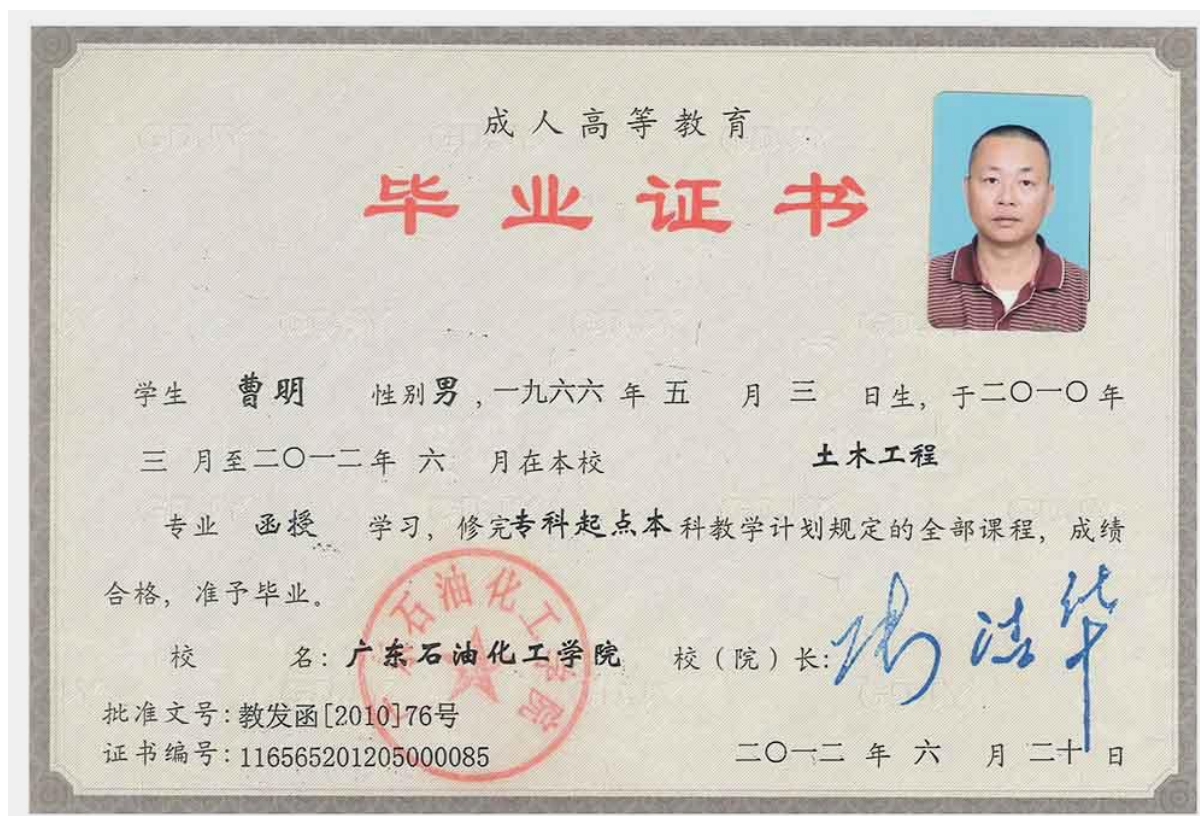 成人高等教育
毕业证书
学生 曹明 性别男,一九六六年五月三日生,于二〇一〇年
三月至二〇一二年六月在本校 土木工程
专业 函授 学习,修完专科起点本科教学计划规定的全部课程,成绩
合格,准予毕业。
校 名:广东石油化工学院 校(院)长:
批准文号:教发函[2010]76号
证书编号:116565201205000085 二〇一二年六月二十日
广东石油化工学院